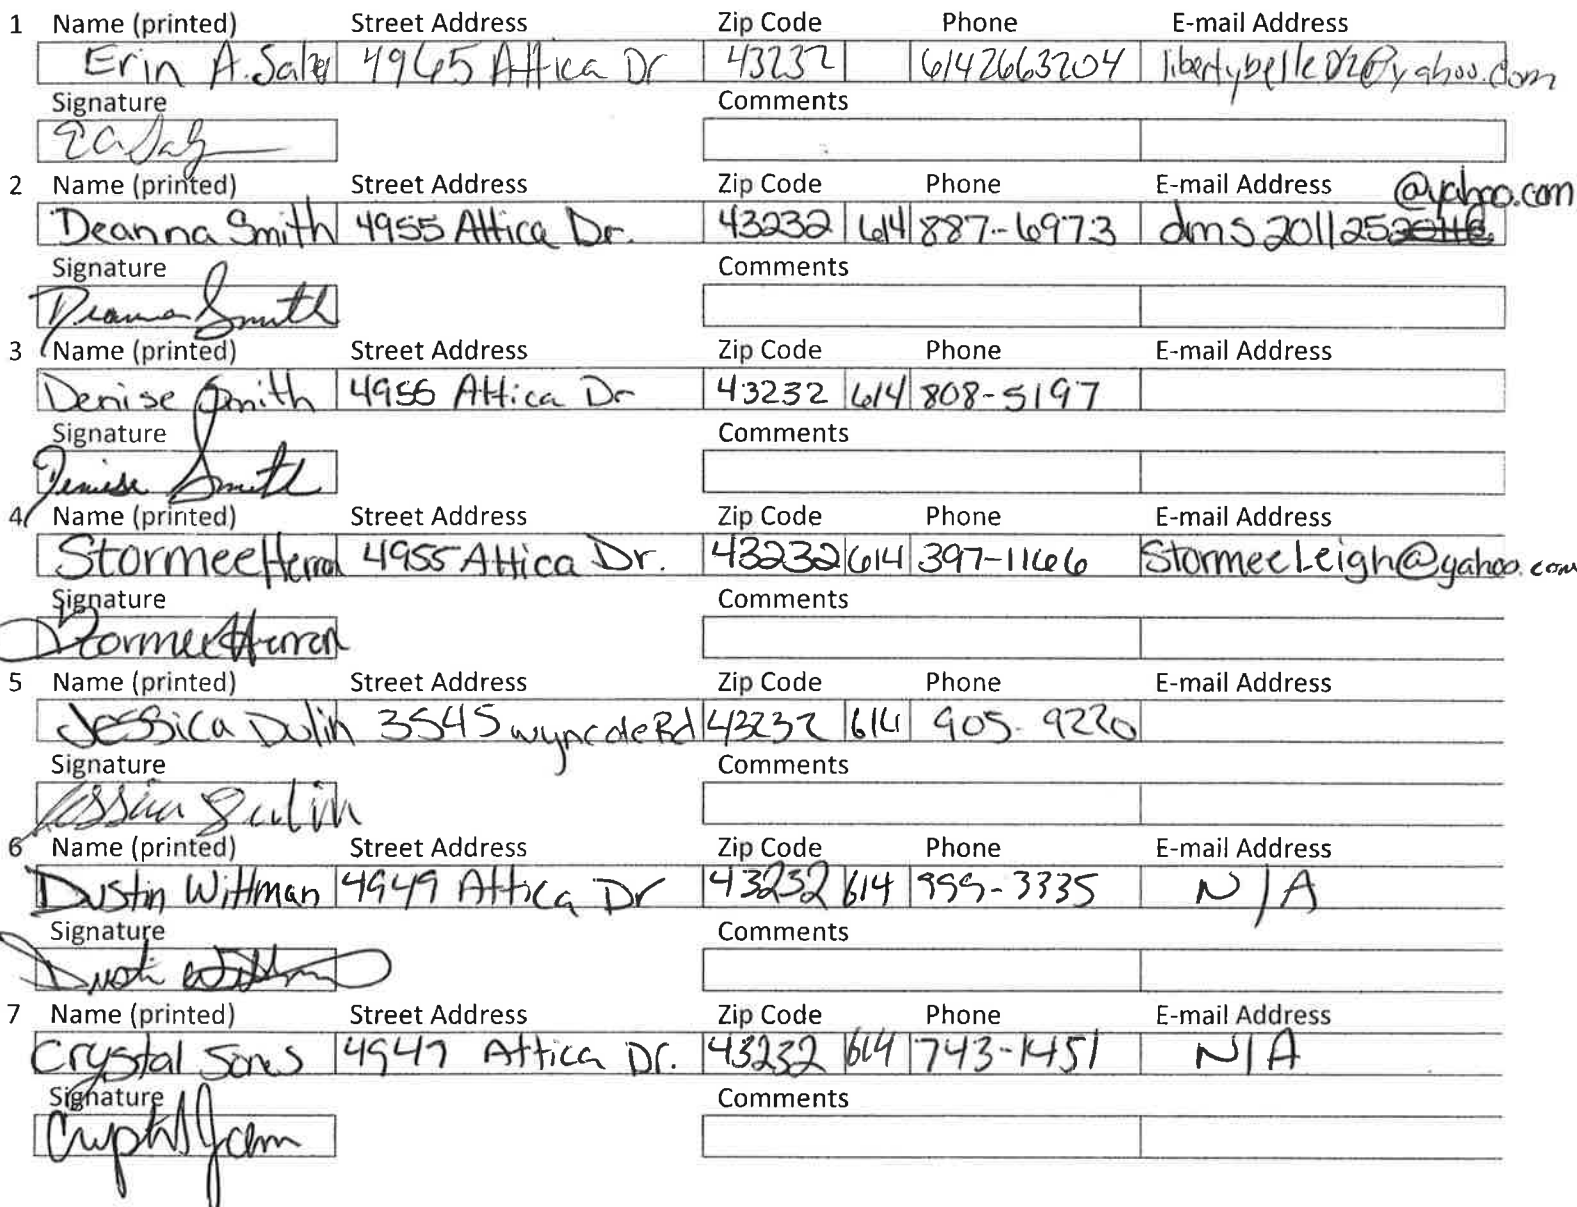 1 Name (printed) Street Address Zip Code Phone E-mail Address
Erin A. 4965 Attica Dr 43232 6142663204
Signature Comments
2 Name (printed) Street Address Zip Code Phone E-mail Address @yahoo.com
Deanna Smith 4955 Attica Dr. 43232 614 887-6973 dms201125
Signature Comments
Deanna Smith
3 Name (printed) Street Address Zip Code Phone E-mail Address
Denise Smith 4955 Attica Dr 43232 614 808-5197
Signature Comments
Denise Smith
4 Name (printed) Street Address Zip Code Phone E-mail Address
Stormee Herron 4955 Attica Dr. 43232 614 397-1166 StormeeLeigh@yahoo.com
Signature Comments
Stormee Herron
5 Name (printed) Street Address Zip Code Phone E-mail Address
Jessica Dulin 3545 wyncote Rd 43232 614 905-9220
Signature Comments
Jessica Dulin
6 Name (printed) Street Address Zip Code Phone E-mail Address
Dustin Wittman 4949 Attica Dr 43232 614 999-3335 N/A
Signature Comments
Dustin Wittman
7 Name (printed) Street Address Zip Code Phone E-mail Address
Crystal 4949 Attica Dr. 43232 614 743-1451 N/A
Signature Comments
Crystal